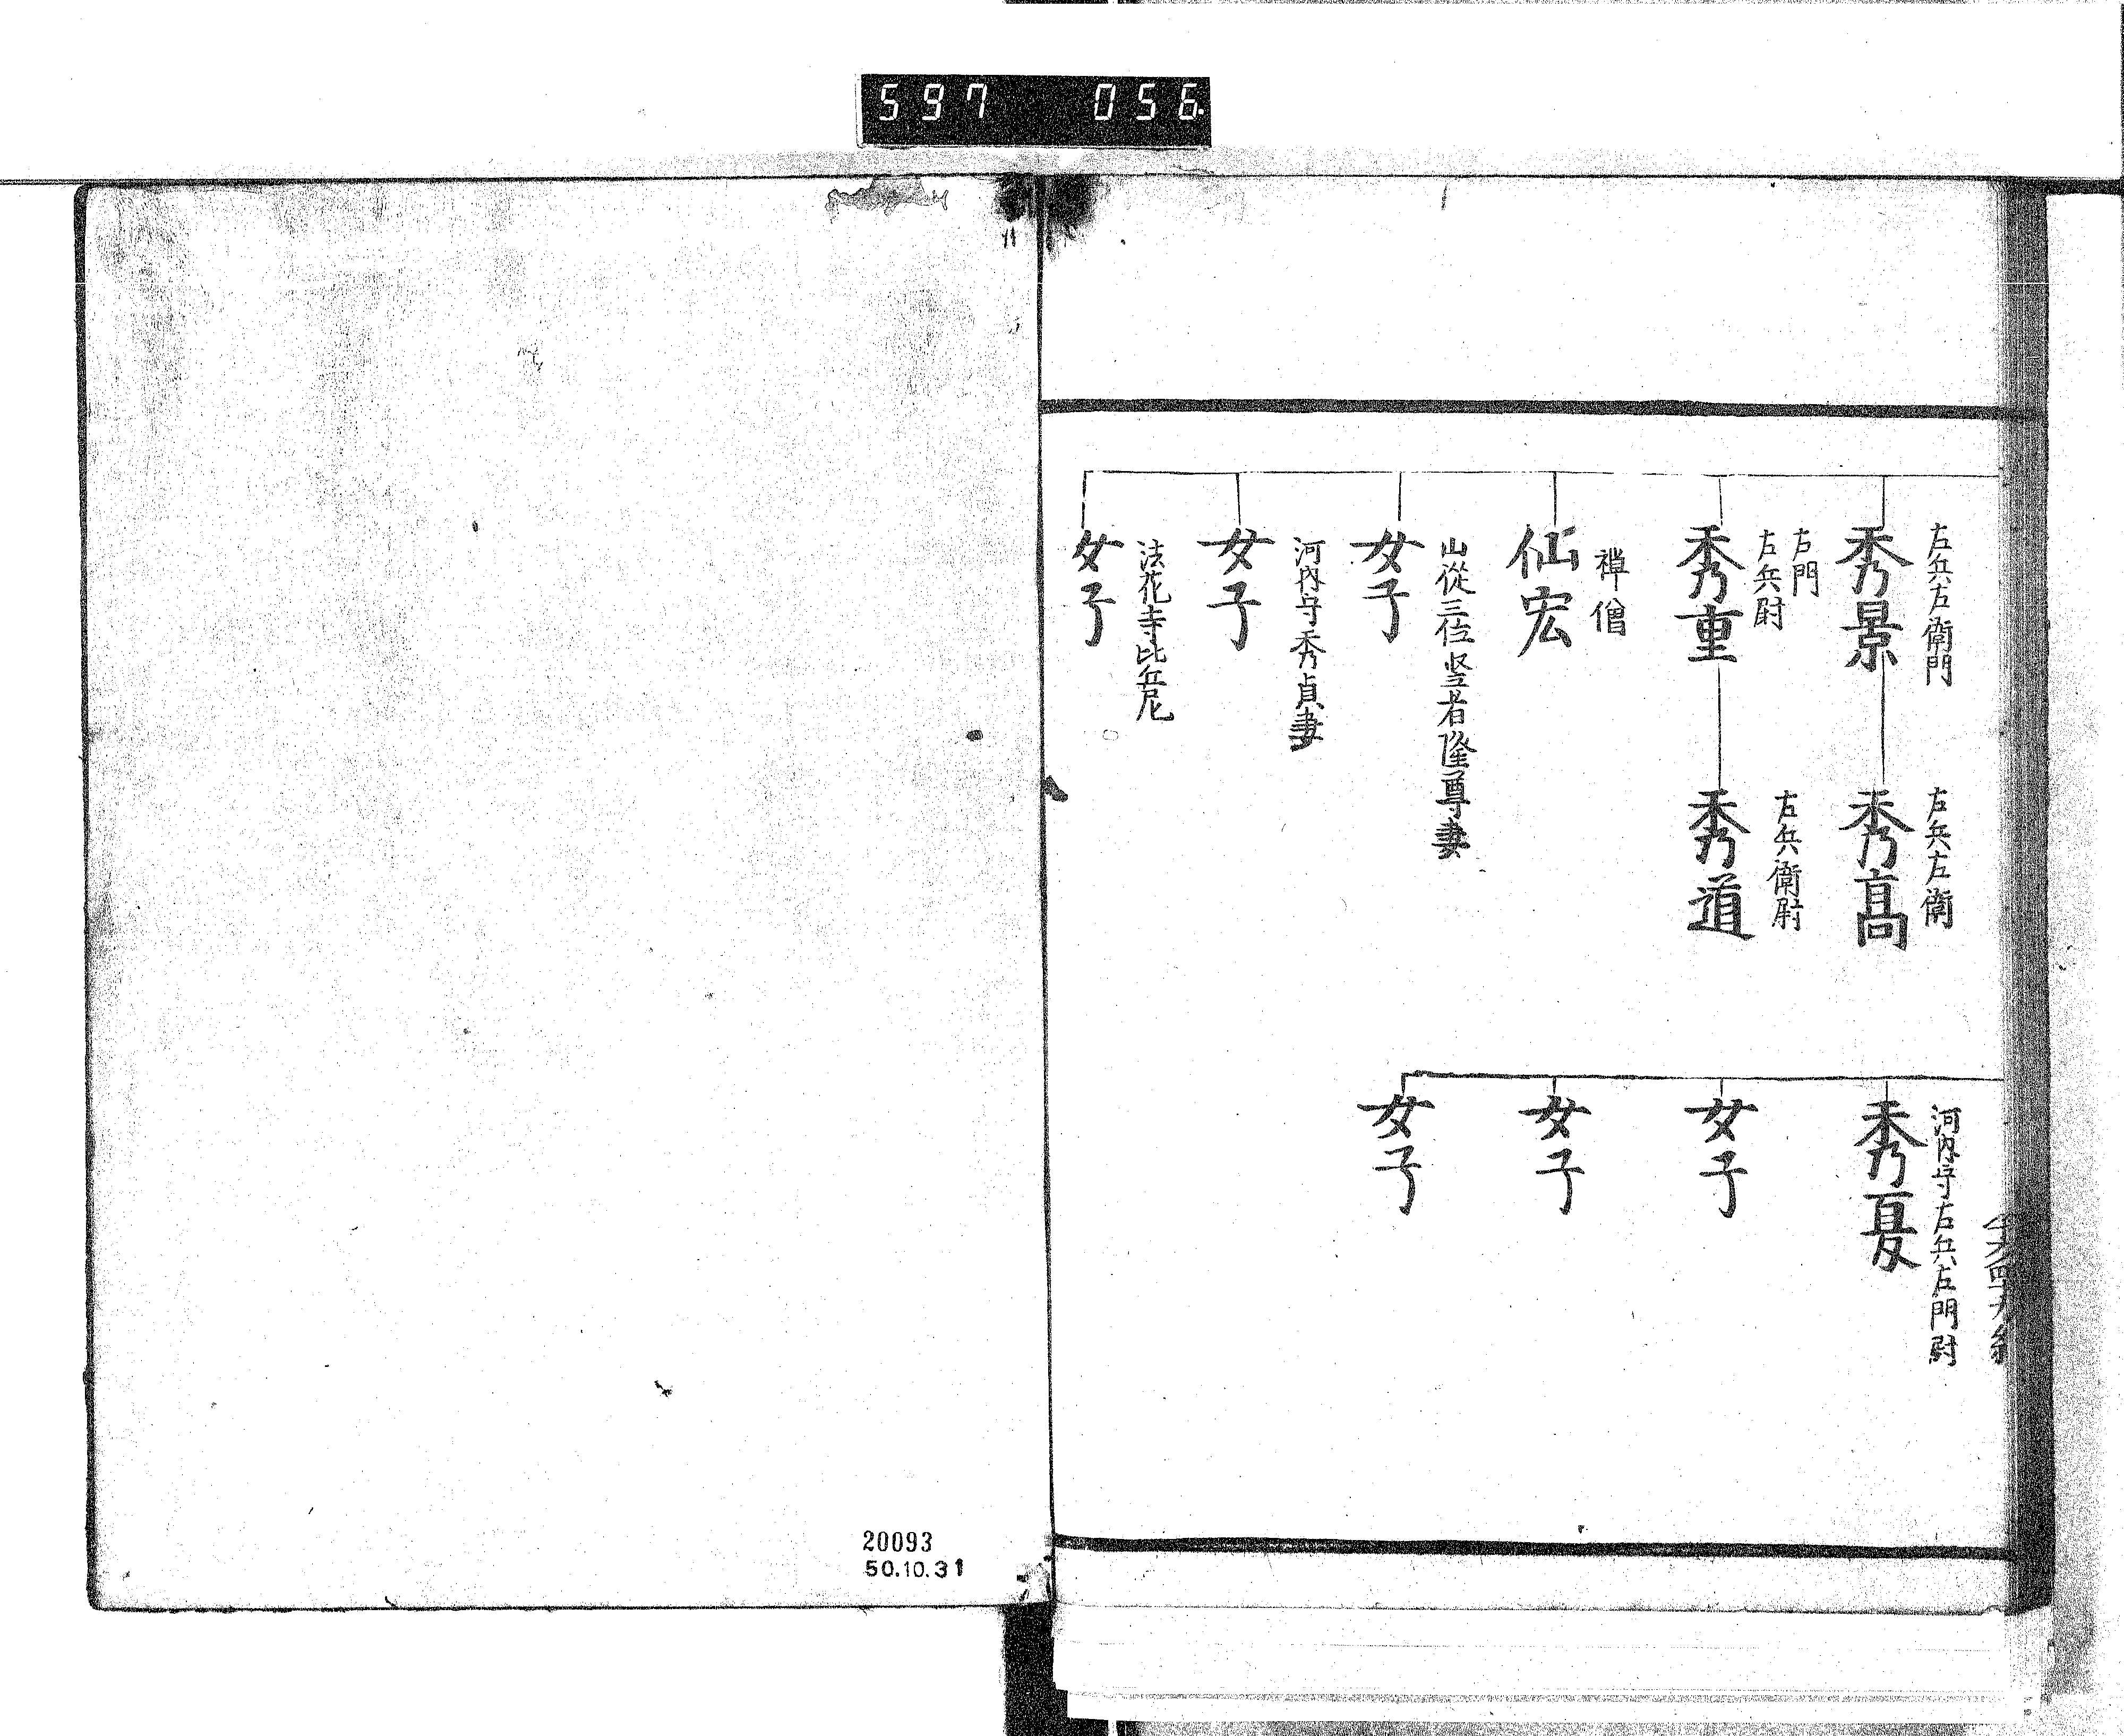 597 056
左兵左衛門
秀景
左兵左衛
秀高
右門
左兵尉
秀重
左兵衛尉
秀道
禅僧
仙宏
山從三位竪者隆尊妻
女子
河内守秀貞妻
女子
法花寺比丘尼
女子
河内守右兵左門尉
秀夏
女子
女子
女子
20093
50.10.31